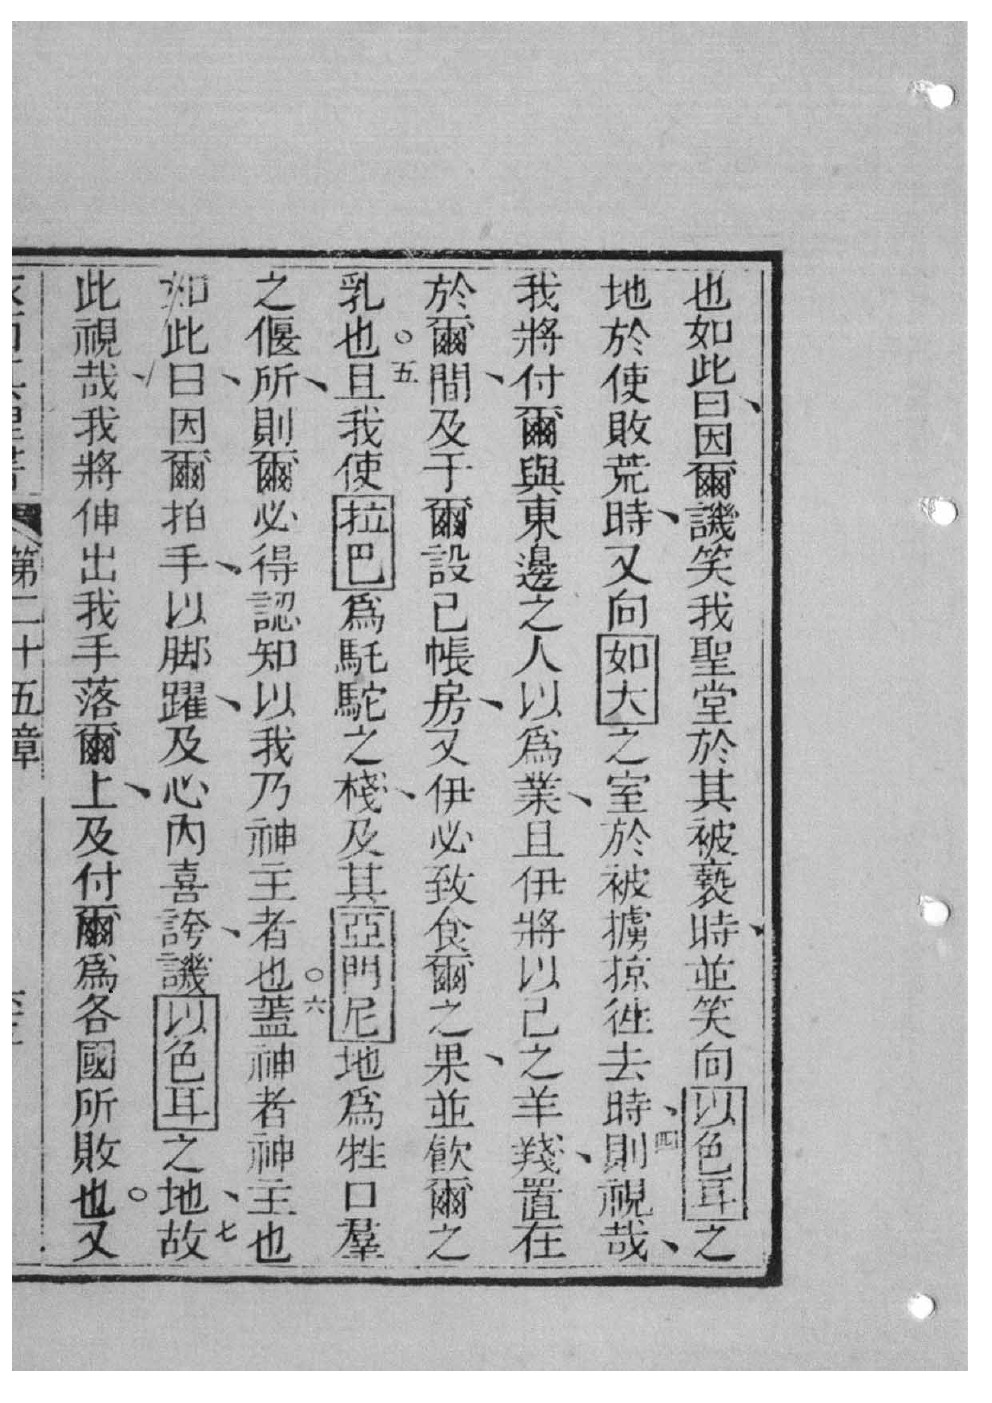 也如此、曰因爾譏笑我聖堂於其被褻時、並笑向以色耳之
地於使敗荒時、又向如大之室於被擄掠徃去時、四則視哉、
我將付爾與東邊之人以爲業、且伊將以己之羊羣、置在
於爾間、及于爾設己帳房、又伊必致食爾之果、並飮爾之
乳也。五且我使拉巴爲馲駝之棧、及其亞門尼地爲牲口羣
之偃所、則爾必得認知以我乃神主者也。六蓋神者神主也
如此曰、因爾拍手、以脚躍、及心內喜誇、譏以色耳之地、七故
此視哉、我將伸出我手落爾上、及付爾爲各國所敗也。又
第二十五章